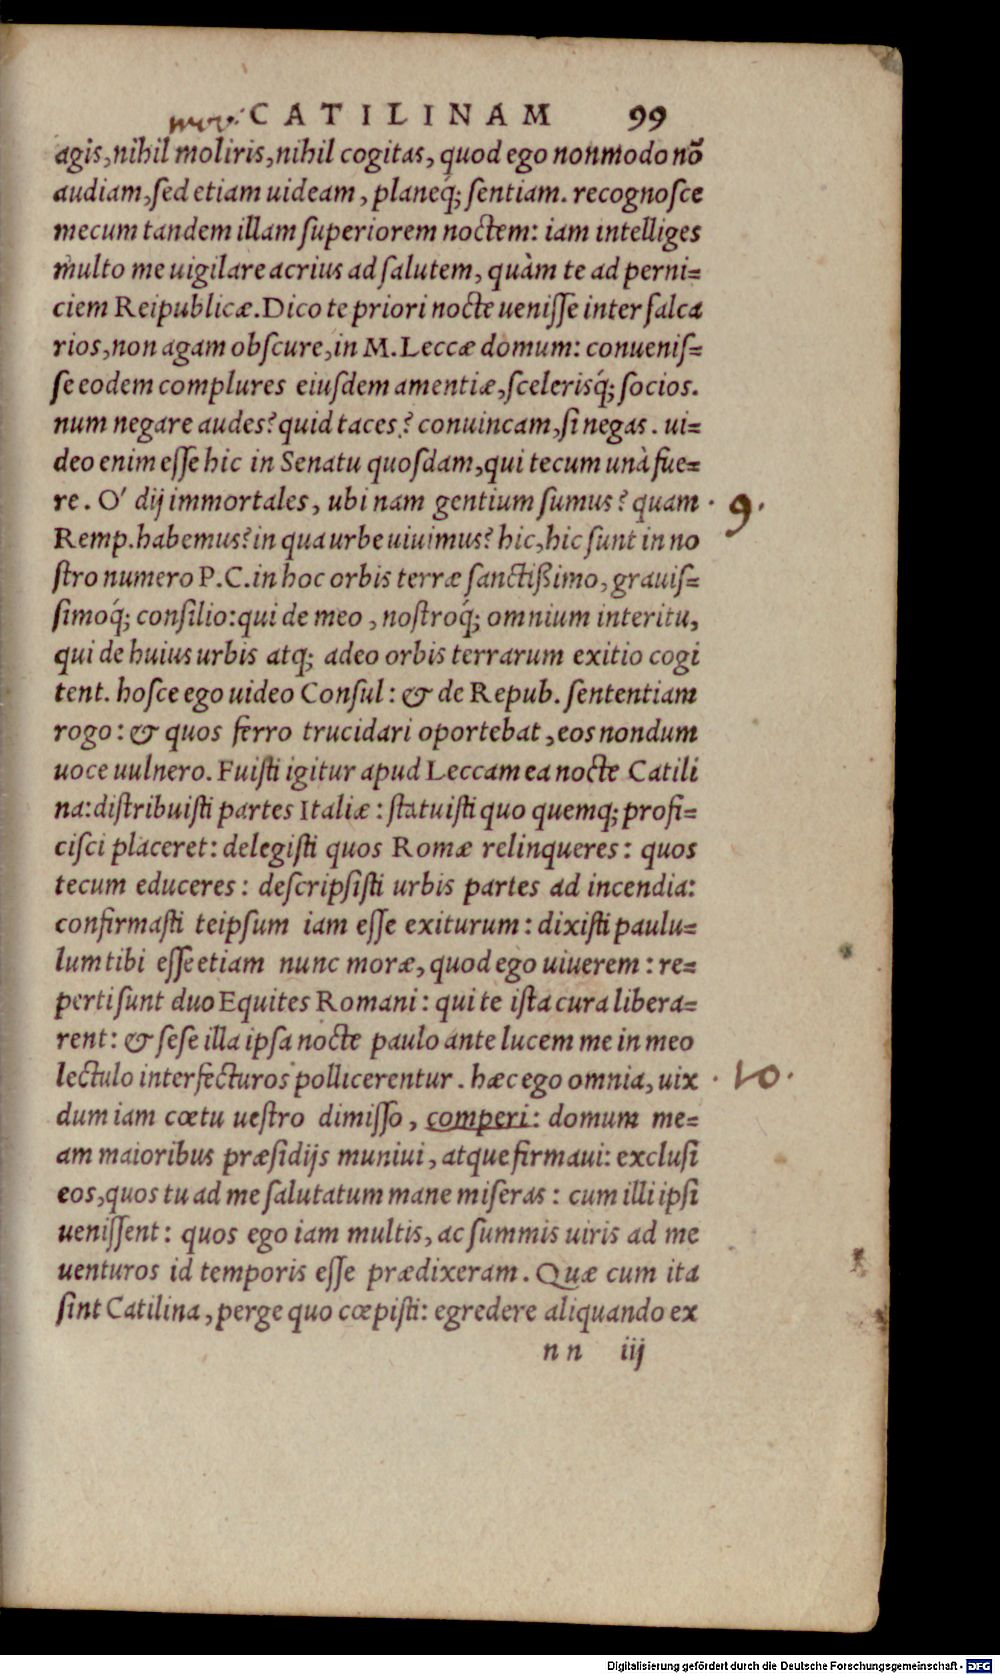 CATILINAM 99
agis, nihil moliris, nihil cogitas, quod ego nonmodo nō
audiam, sed etiam uideam, planeq́; sentiam. recognosce
mecum tandem illam superiorem noctem: iam intelliges
multo me uigilare acrius ad salutem, quàm te ad perni=
ciem Reipublicæ. Dico te priori nocte uenisse inter falca
rios, non agam obscure, in M. Leccæ domum: conuenis=
se eodem complures eiusdem amentiæ, scelerisq́; socios.
num negare audes? quid taces? conuincam, si negas. ui=
deo enim esse hic in Senatu quosdam, qui tecum unà fue=
re. O' dij immortales, ubi nam gentium sumus? quam · 9 ·
Remp. habemus? in qua urbe uiuimus? hic, hic sunt in no
stro numero P.C. in hoc orbis terræ sanctißimo, grauis=
simoq́; consilio: qui de meo, nostroq́; omnium interitu,
qui de huius urbis atq; adeo orbis terrarum exitio cogi
tent. hosce ego uideo Consul: & de Repub. sententiam
rogo: & quos ferro trucidari oportebat, eos nondum
uoce uulnero. Fuisti igitur apud Leccam ea nocte Catili
na: distribuisti partes Italiæ: statuisti quo quemq; profi=
cisci placeret: delegisti quos Romæ relinqueres: quos
tecum educeres: descripsisti urbis partes ad incendia:
confirmasti teipsum iam esse exiturum: dixisti paulu=
lum tibi esse etiam nunc moræ, quod ego uiuerem: re=
perti sunt duo Equites Romani: qui te ista cura libera=
rent: & sese illa ipsa nocte paulo ante lucem me in meo
lectulo interfecturos pollicerentur. hæc ego omnia, uix · 10 ·
dum iam cœtu uestro dimisso, comperi: domum me=
am maioribus præsidijs muniui, atque firmaui: exclusi
eos, quos tu ad me salutatum mane miseras: cum illi ipsi
uenissent: quos ego iam multis, ac summis uiris ad me
uenturos id temporis esse prædixeram. Quæ cum ita
sint Catilina, perge quo cœpisti: egredere aliquando ex
nn iij
Digitalisierung gefördert durch die Deutsche Forschungsgemeinschaft - DFG